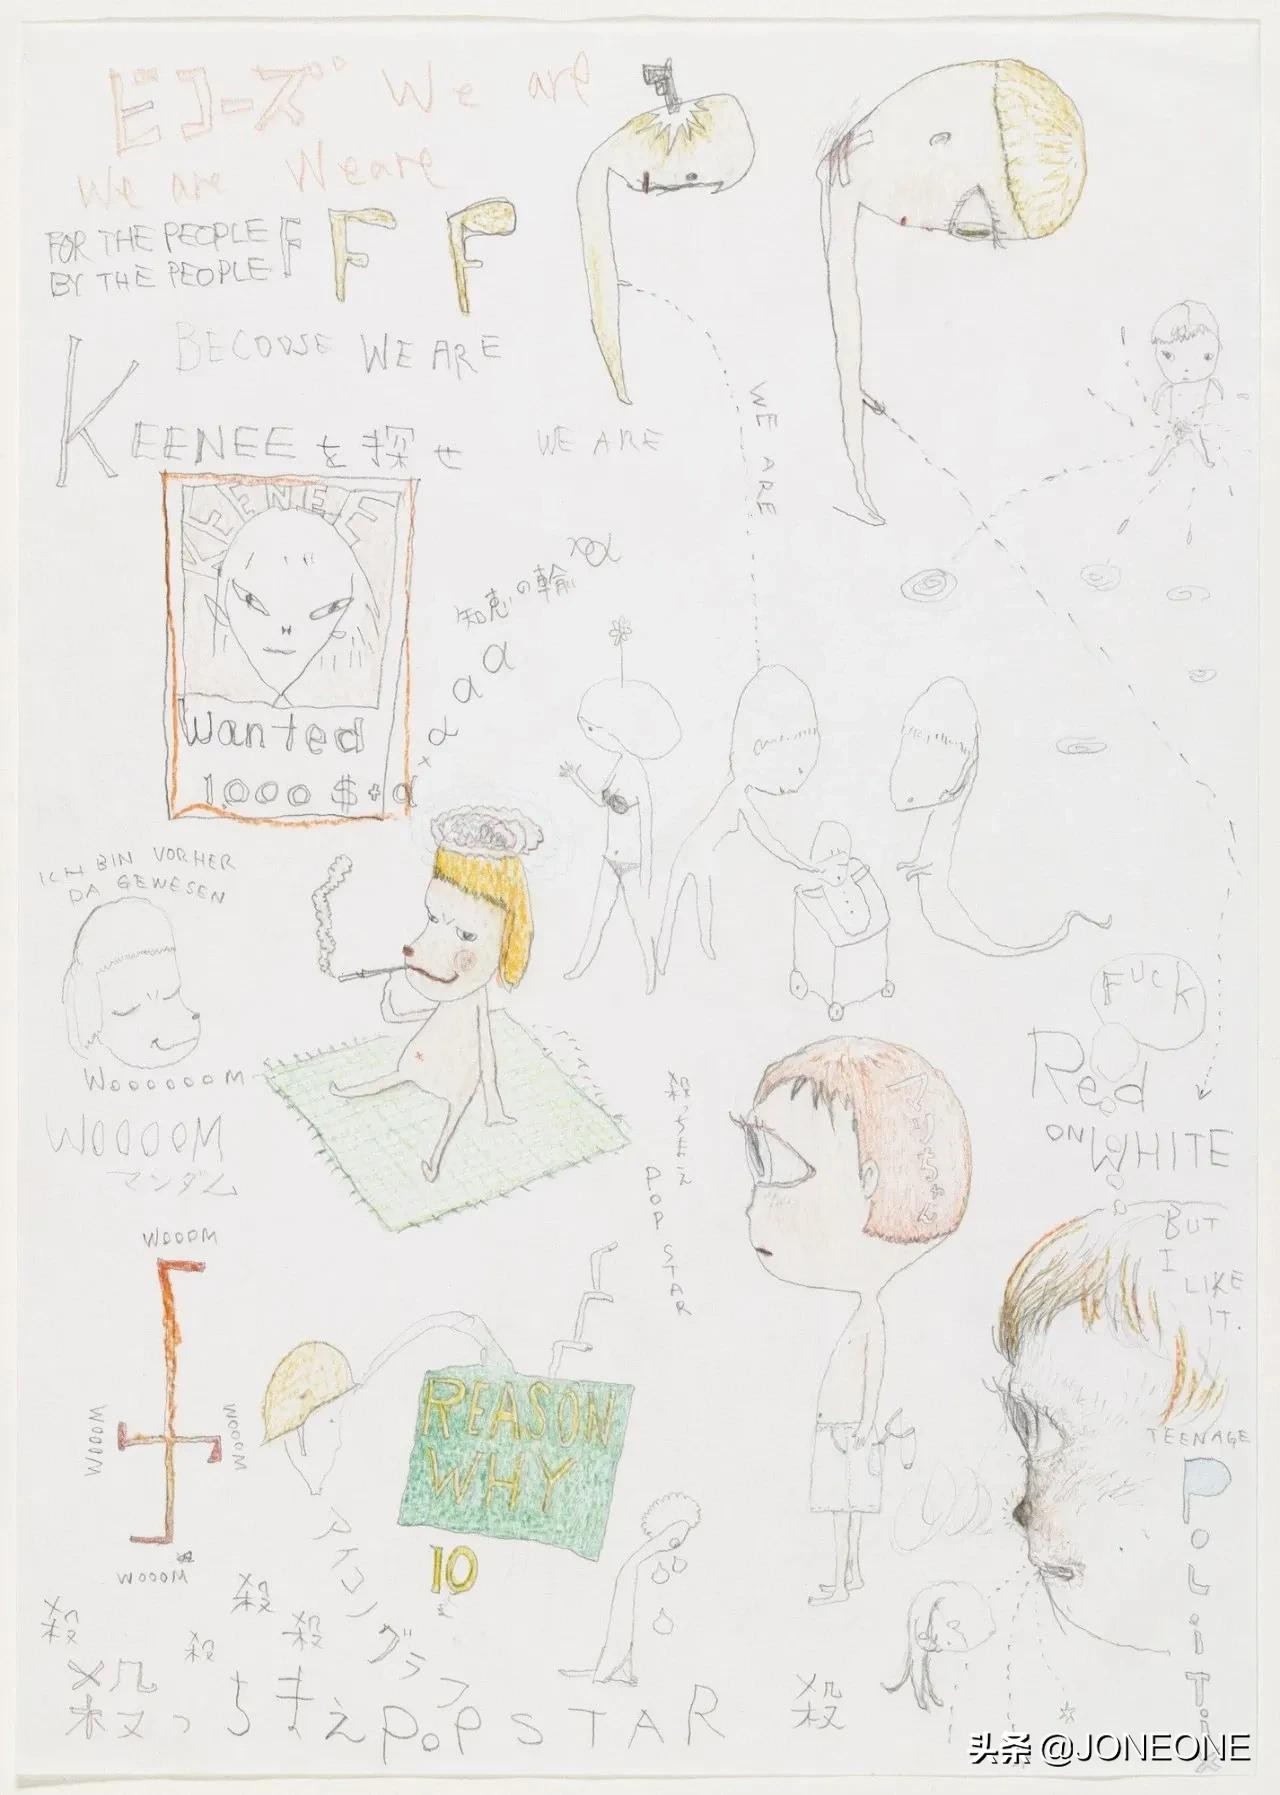 ビコーズ We are
We are We are
FOR THE PEOPLE
BY THE PEOPLE
F F F
BECOOSE WE ARE
KEENEEを探せ
WE ARE
WE ARE
KEENEE
Wanted
1.000 $+α
知恵の輪
α
α
α
ICH BIN VORHER
DA GEWESEN
WOOOOOOM
WOOOOM
マンダム
WOOOM
WOOOM
WOOOM
WOOOM
殺っちまえ POP STAR
マリちゃん
FUCK
Red
ON WHITE
BUT
I
LIKE
IT.
TEENAGE
POLiTix
REASON
WHY
10
アイコングラフ
殺
殺
殺
殺
殺っちまえ POP STAR
殺
头条 @JONEONE